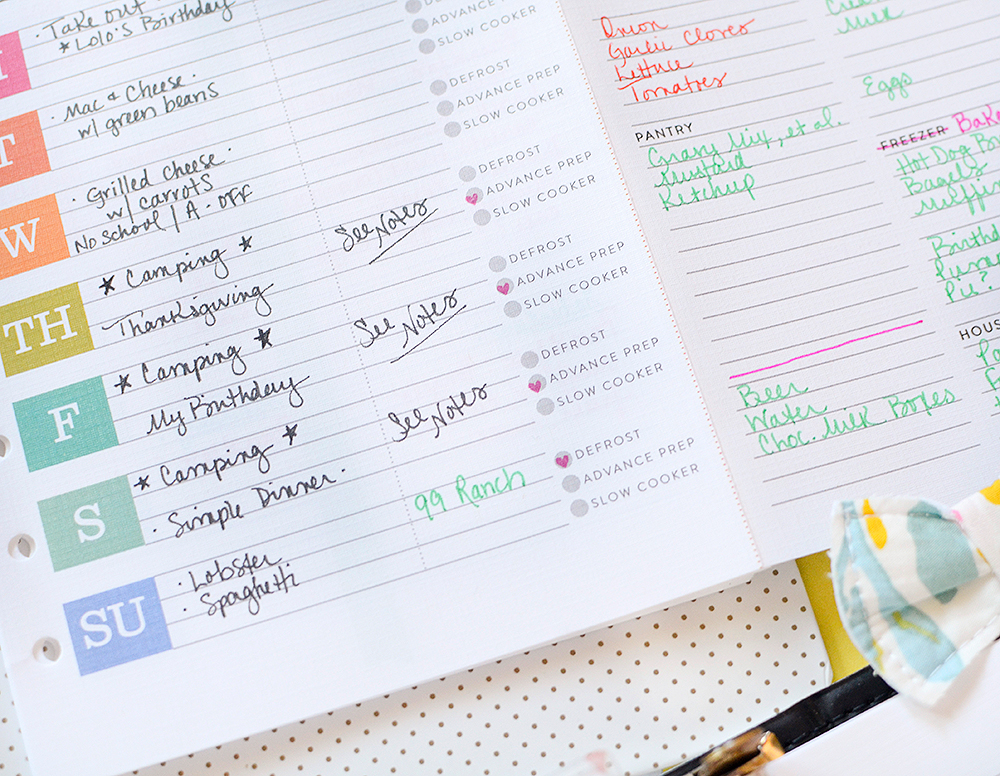 · Take out
* Lolo's Birthday
ADVANCE PREP
SLOW COOKER
T
· Mac & Cheese ·
w/ green beans
DEFROST
ADVANCE PREP
SLOW COOKER
W
· Grilled Cheese ·
w/ carrots
No School / A · OFF
DEFROST
ADVANCE PREP
SLOW COOKER
TH
* Camping *
Thanksgiving
See Notes
DEFROST
ADVANCE PREP
SLOW COOKER
F
* Camping *
My Birthday
See Notes
DEFROST
ADVANCE PREP
SLOW COOKER
S
* Camping *
· Simple Dinner ·
See Notes
DEFROST
ADVANCE PREP
SLOW COOKER
SU
· Lobster
· Spaghetti
99 Ranch
Onion
Garlic Cloves
Lettuce
Tomatoes
PANTRY
Gravy Mix, et al.
Mustard
Ketchup
Beer
Water
Choc. Milk Boxes
Milk
Eggs
FREEZER
Hot Dog
Bagels
Pie?